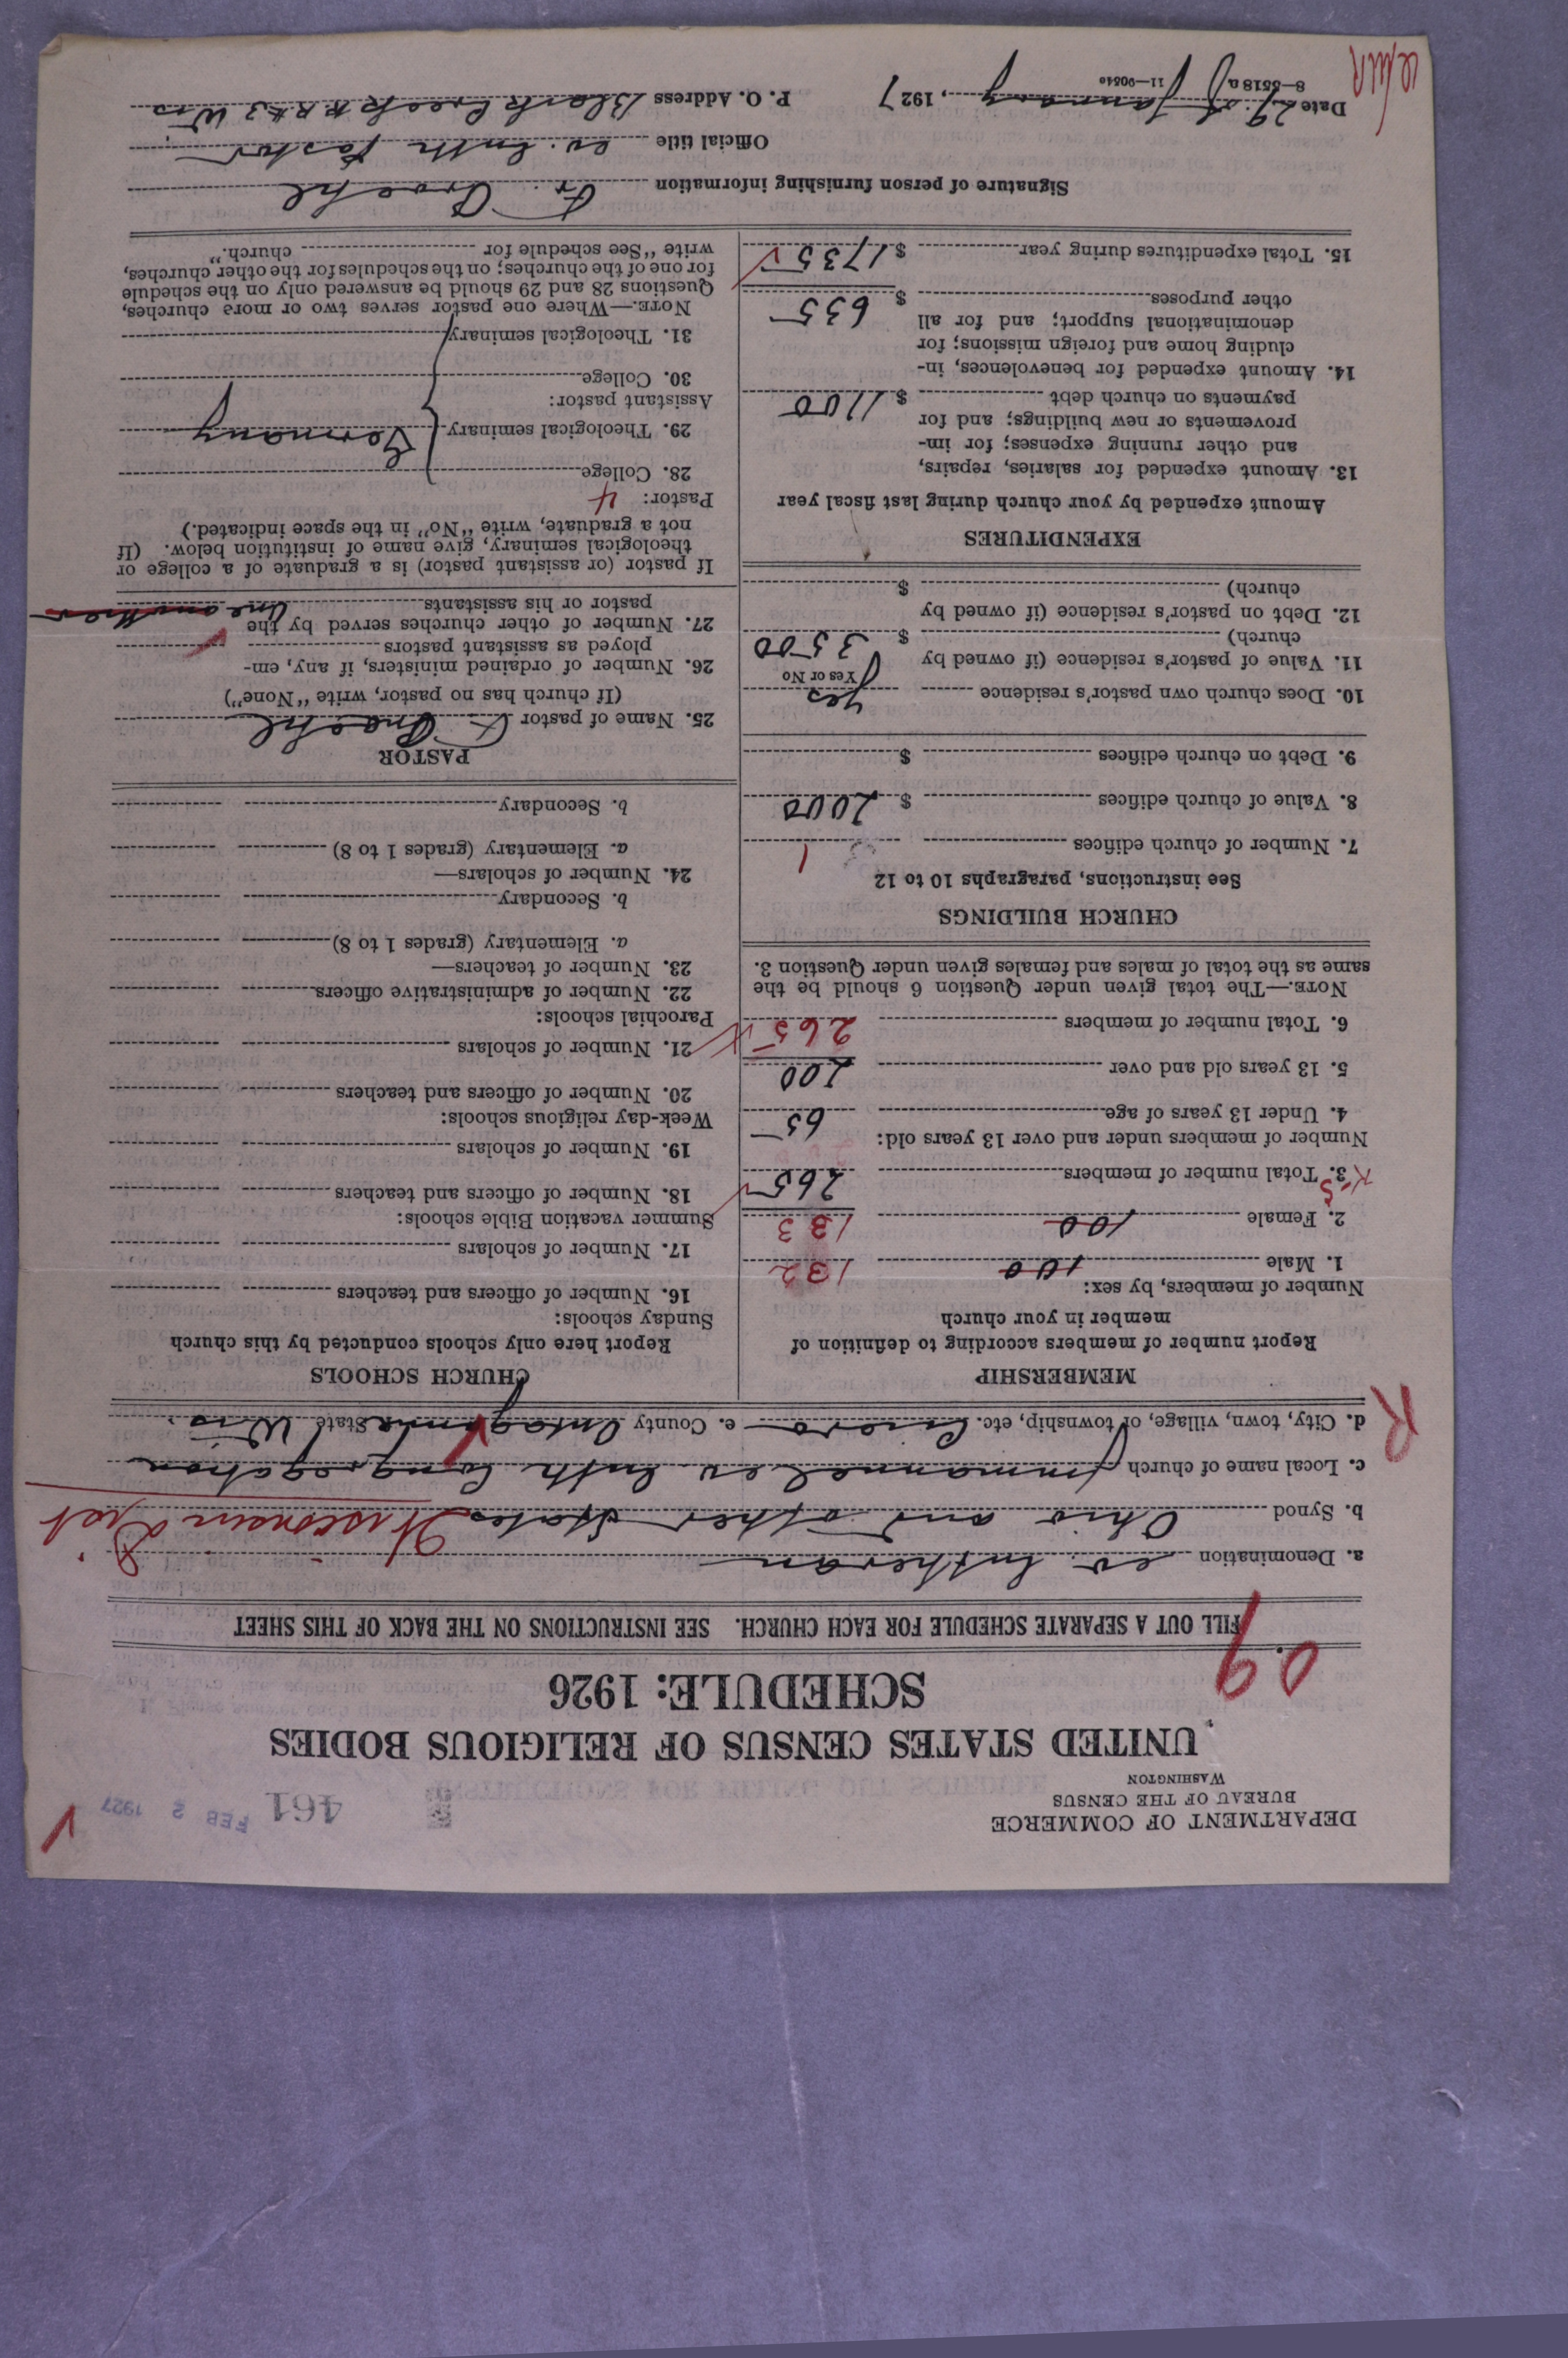 DEPARTMENT OF COMMERCE
BUREAU OF THE CENSUS
WASHINGTON
461
FEB 2 1927
UNITED STATES CENSUS OF RELIGIOUS BODIES
SCHEDULE: 1926
09
FILL OUT A SEPARATE SCHEDULE FOR EACH CHURCH. SEE INSTRUCTIONS ON THE BACK OF THIS SHEET
a. Denomination ev. Lutheran
b. Synod Ohio and other States Wisconsin Dist
c. Local name of church Immanuel ev Luth Congregation
d. City, town, village, or township, etc. Cicero e. County Outagamie State Wis.
R
MEMBERSHIP
Report number of members according to definition of
member in your church
Number of members, by sex:
1. Male 100 132
2. Female 100 133
3. Total number of members 265
Number of members under and over 13 years old:
4. Under 13 years of age 65
5. 13 years old and over 200
6. Total number of members 265
NOTE.—The total given under Question 6 should be the
same as the total of males and females given under Question 3.
CHURCH BUILDINGS
See instructions, paragraphs 10 to 12
7. Number of church edifices 1
8. Value of church edifices $ 2000
9. Debt on church edifices $
10. Does church own pastor's residence yes
Yes or No
11. Value of pastor's residence (if owned by
church) $ 3500
12. Debt on pastor's residence (if owned by
church) $
EXPENDITURES
Amount expended by your church during last fiscal year
13. Amount expended for salaries, repairs,
and other running expenses; for im-
provements or new buildings; and for
payments on church debt $ 1100
14. Amount expended for benevolences, in-
cluding home and foreign missions; for
denominational support; and for all
other purposes $ 635
15. Total expenditures during year $ 1735
CHURCH SCHOOLS
Report here only schools conducted by this church
Sunday schools:
16. Number of officers and teachers
17. Number of scholars
Summer vacation Bible schools:
18. Number of officers and teachers
19. Number of scholars
Week-day religious schools:
20. Number of officers and teachers
21. Number of scholars
Parochial schools:
22. Number of administrative officers
23. Number of teachers—
a. Elementary (grades 1 to 8)
b. Secondary
24. Number of scholars—
a. Elementary (grades 1 to 8)
b. Secondary
PASTOR
25. Name of pastor F.
(If church has no pastor, write "None")
26. Number of ordained ministers, if any, em-
ployed as assistant pastors
27. Number of other churches served by the
pastor or his assistants One another
If pastor (or assistant pastor) is a graduate of a college or
theological seminary, give name of institution below. (If
not a graduate, write "No" in the space indicated.)
Pastor: 4
28. College
29. Theological seminary Germany
Assistant pastor:
30. College
31. Theological seminary
NOTE.—Where one pastor serves two or more churches,
Questions 28 and 29 should be answered only on the schedule
for one of the churches; on the schedules for the other churches,
write "See schedule for church."
Signature of person furnishing information Fr.
Official title ev. Luth Pastor
Date 29. of January, 1927 P. O. Address Black Creek R R #3 Wis
8—5518a 11—9054